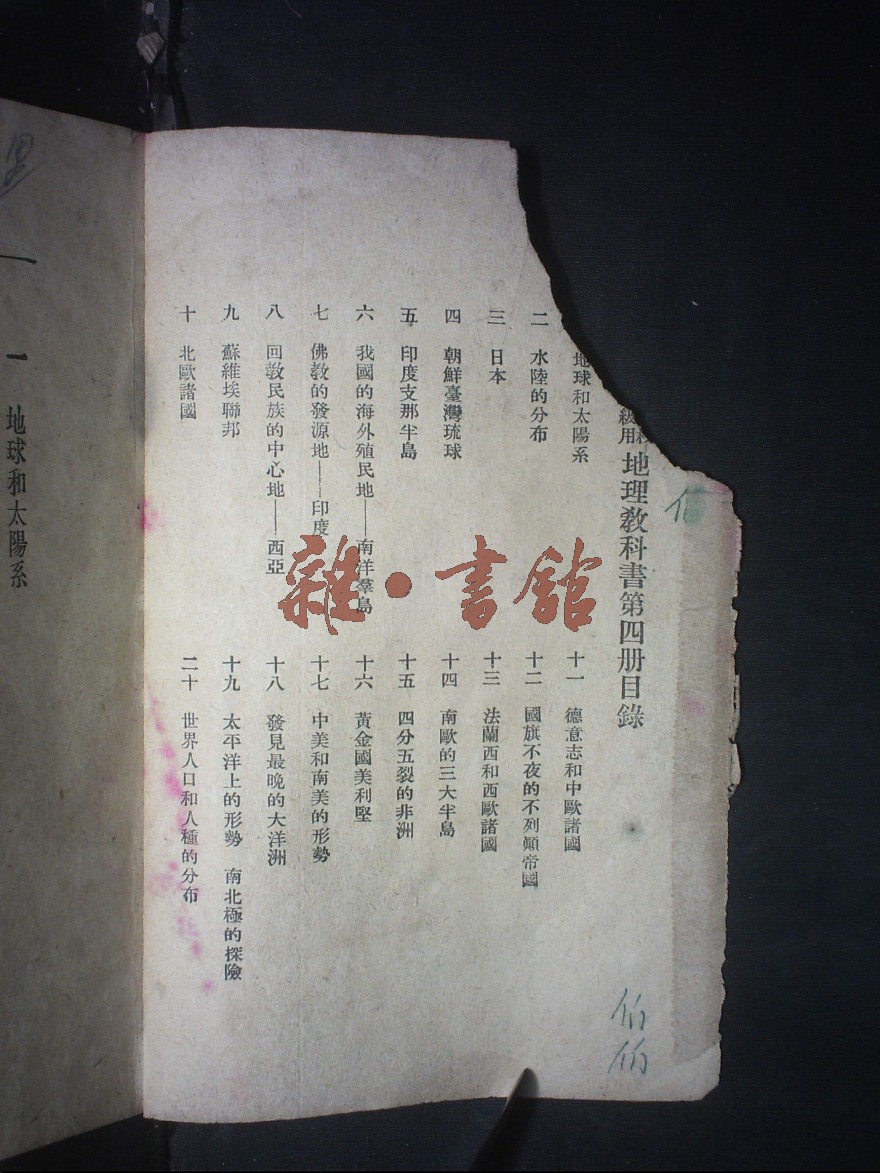 級用 地理教科書第四册目錄
地球和太陽系
二 水陸的分布
三 日本
四 朝鮮臺灣琉球
五 印度支那半島
六 我國的海外殖民地——南洋羣島
七 佛教的發源地——印度
八 回教民族的中心地——西亞
九 蘇維埃聯邦
十 北歐諸國
十一 德意志和中歐諸國
十二 國旗不夜的不列顚帝國
十三 法蘭西和西歐諸國
十四 南歐的三大半島
十五 四分五裂的非洲
十六 黃金國美利堅
十七 中美和南美的形勢
十八 發見最晚的大洋洲
十九 太平洋上的形勢 南北極的探險
二十 世界人口和人種的分布
一 地球和太陽系
雜·書館
伯
伯